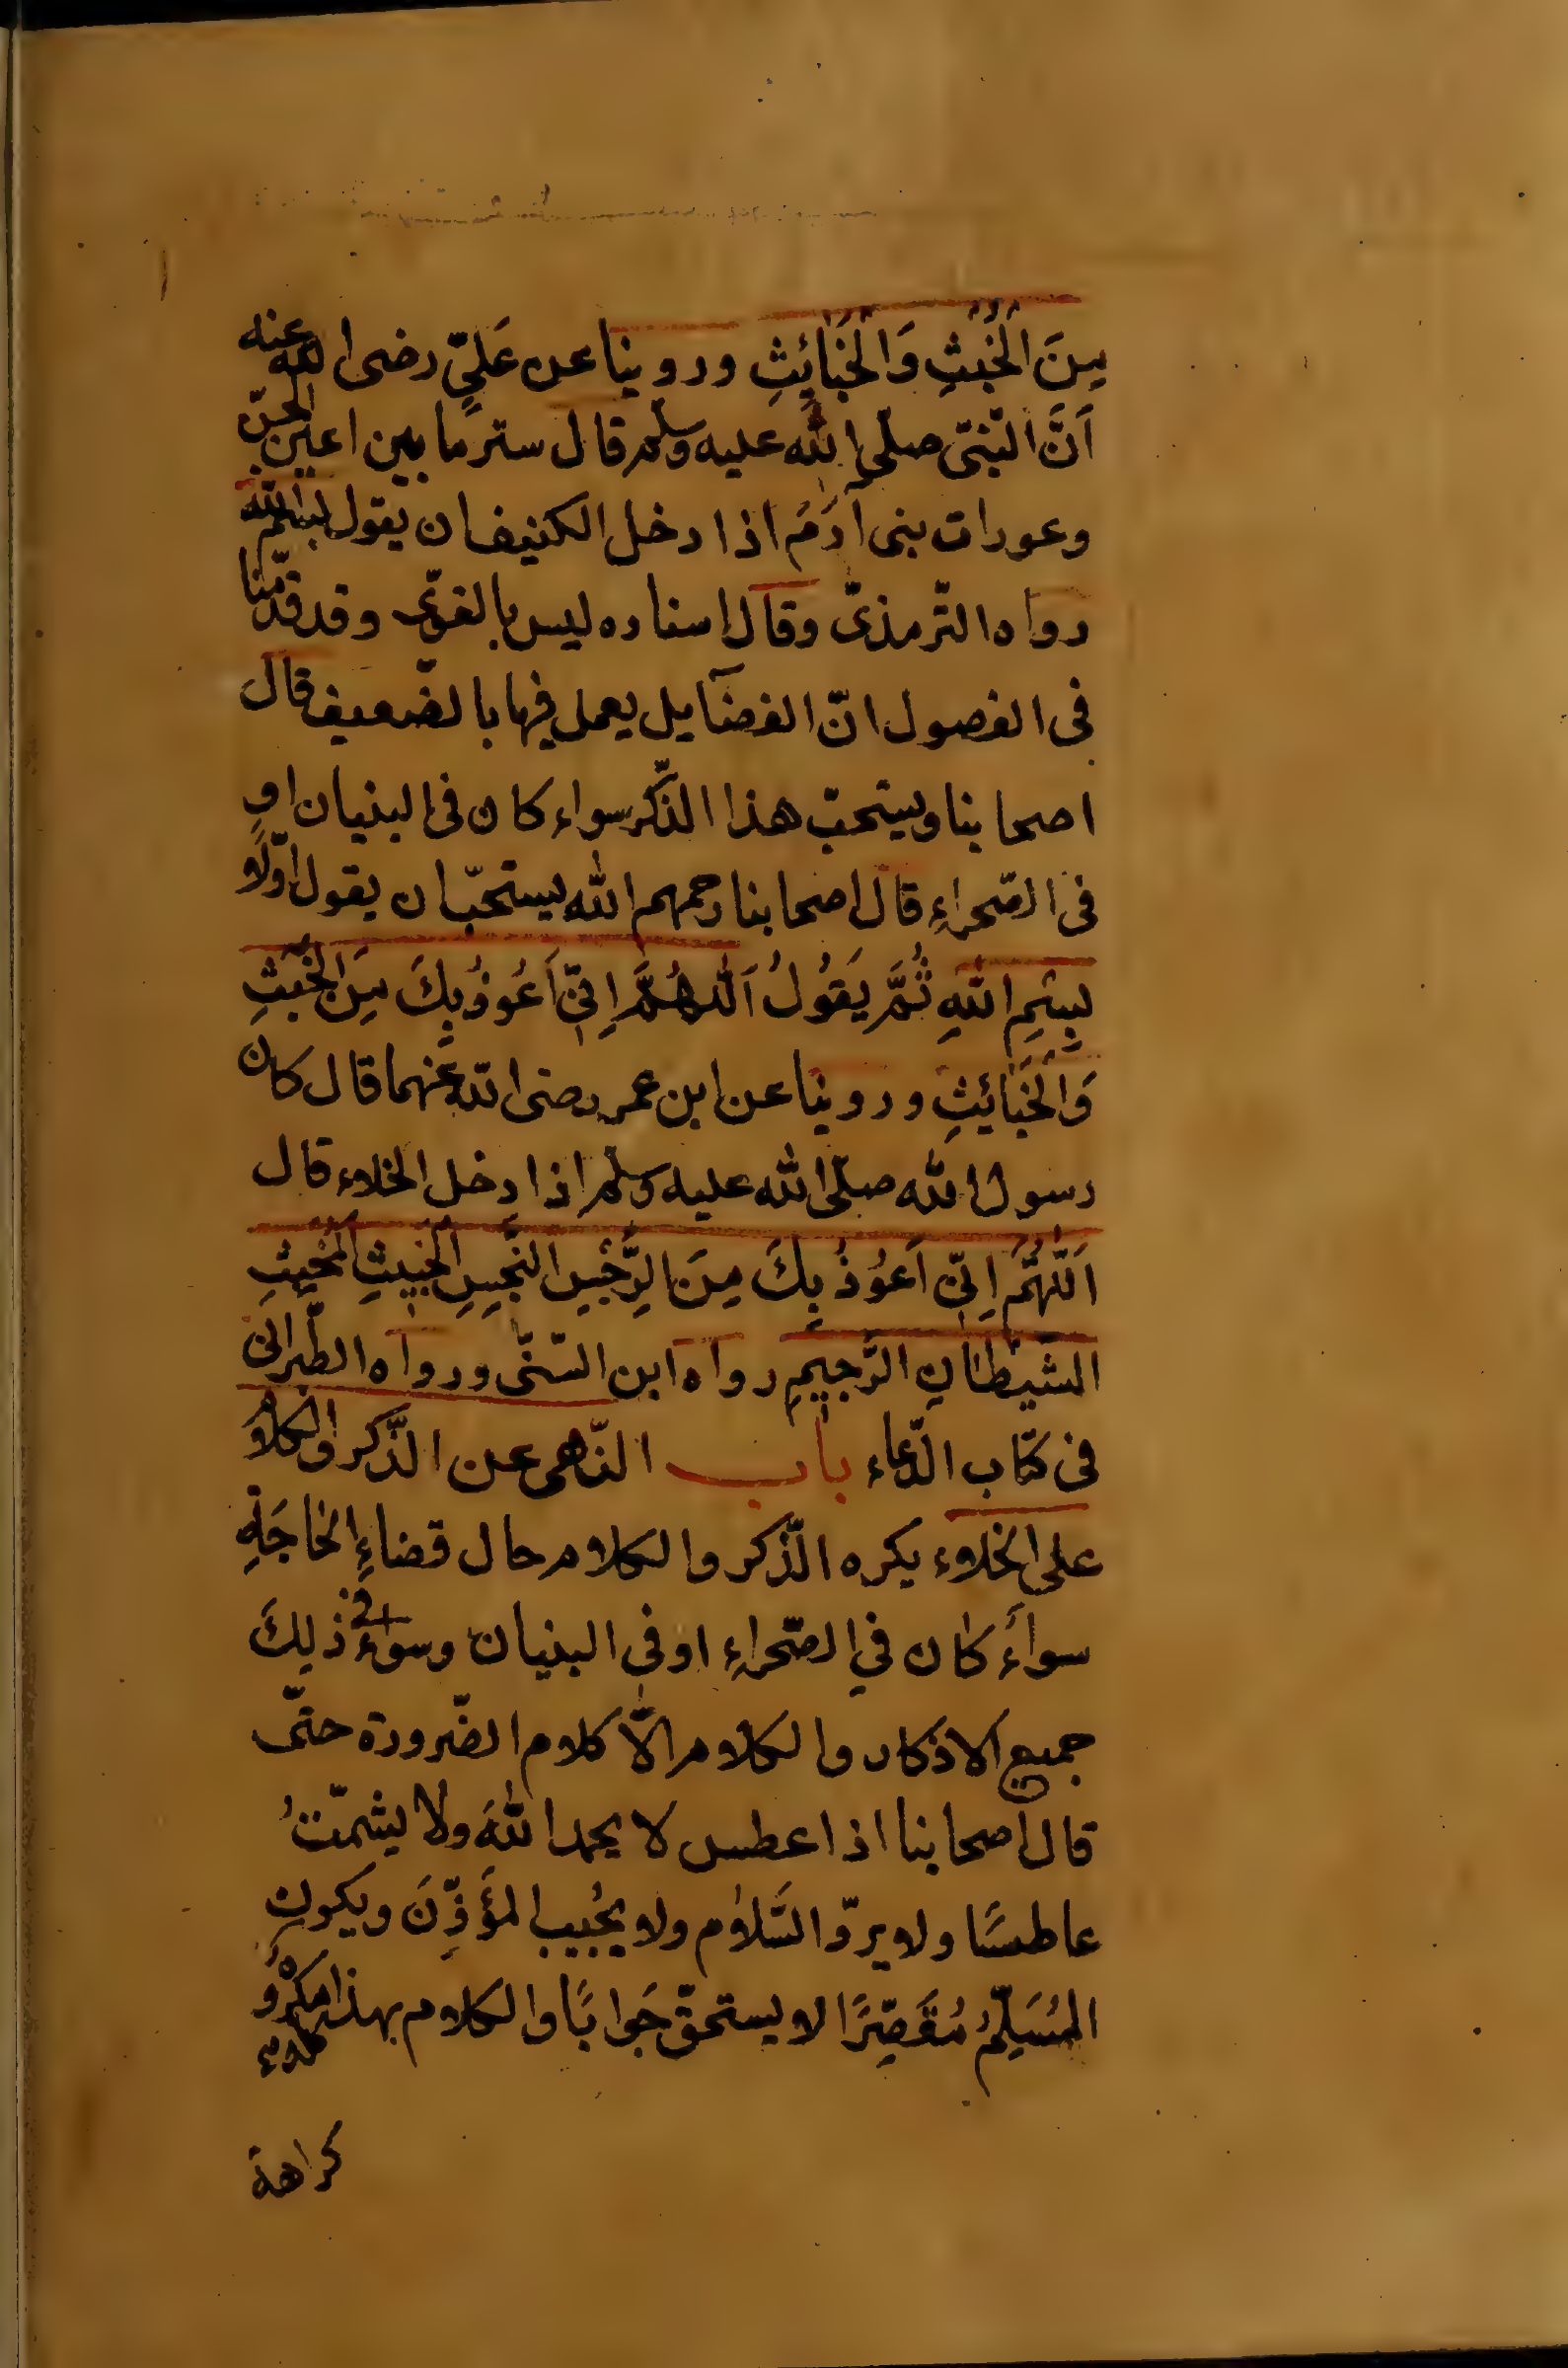 مِنَ الْخُبُثِ وَالْخَبَائِثِ وروينا عن عَليٍّ رضى الله عنه
اَنَّ النّبىّ صلّى الله عليه وسلم قال ستر ما بين اعين الجنّ
وعورات بنى آدَمَ اذا دخل الكنيف ان يقول بسم الله
رواه التّرمذىّ وقال اسناده ليس بالقوىّ وقد قدّمنا
فى الفصول انّ الفضآيل يعمل فيها بالضّعيف قال
اصحابنا ويستحبّ هذا الذّكر سواء كان فى البنيان او
فى الصّحراءِ قال اصحابنا رحمهم الله يستحبّ ان يقول اوّلًا
بِسْمِ اللهِ ثُمَّ يَقُولُ اَللّٰهُمَّ اِنِّى اَعُوذُ بِكَ مِنَ الْخُبُثِ
وَالْخَبَائِثِ وروينا عن ابن عمر رضى الله عنهما قال كان
رسول الله صلّى الله عليه وسلم اذا دخل الخلاء قال
اَللّٰهُمَّ اِنِّى اَعُوْذُ بِكَ مِنَ الرِّجْسِ النَّجِسِ الْخَبِيثِ الْمُخْبِثِ
الشَّيْطَانِ الرَّجِيمِ رواه ابن السّنّى ورواه الطّبرانى
فى كتاب الدّعاء باب النّهى عن الذّكر والكلامُ
على الخلاء يكره الذّكر والكلام حال قضاءِ الحاجَةِ
سواءً كان في الصّحراءِ او في البنيان وسواءٌ في ذٰلِكَ
جميع الاذكار والكلام الاّ كلام الضّرورة حتّى
قال اصحابنا اذا عطس لا يحمد اللهَ ولا يشمّتُ
عاطسًا ولا يردّ السَّلام ولا يجُيب المؤَذِّنَ ويكون
المُسَلِّمُ مُقَصِّرًا لا يستحقّ جَوابًا والكلام بهذا مَكْرُوهٌ
كراهة